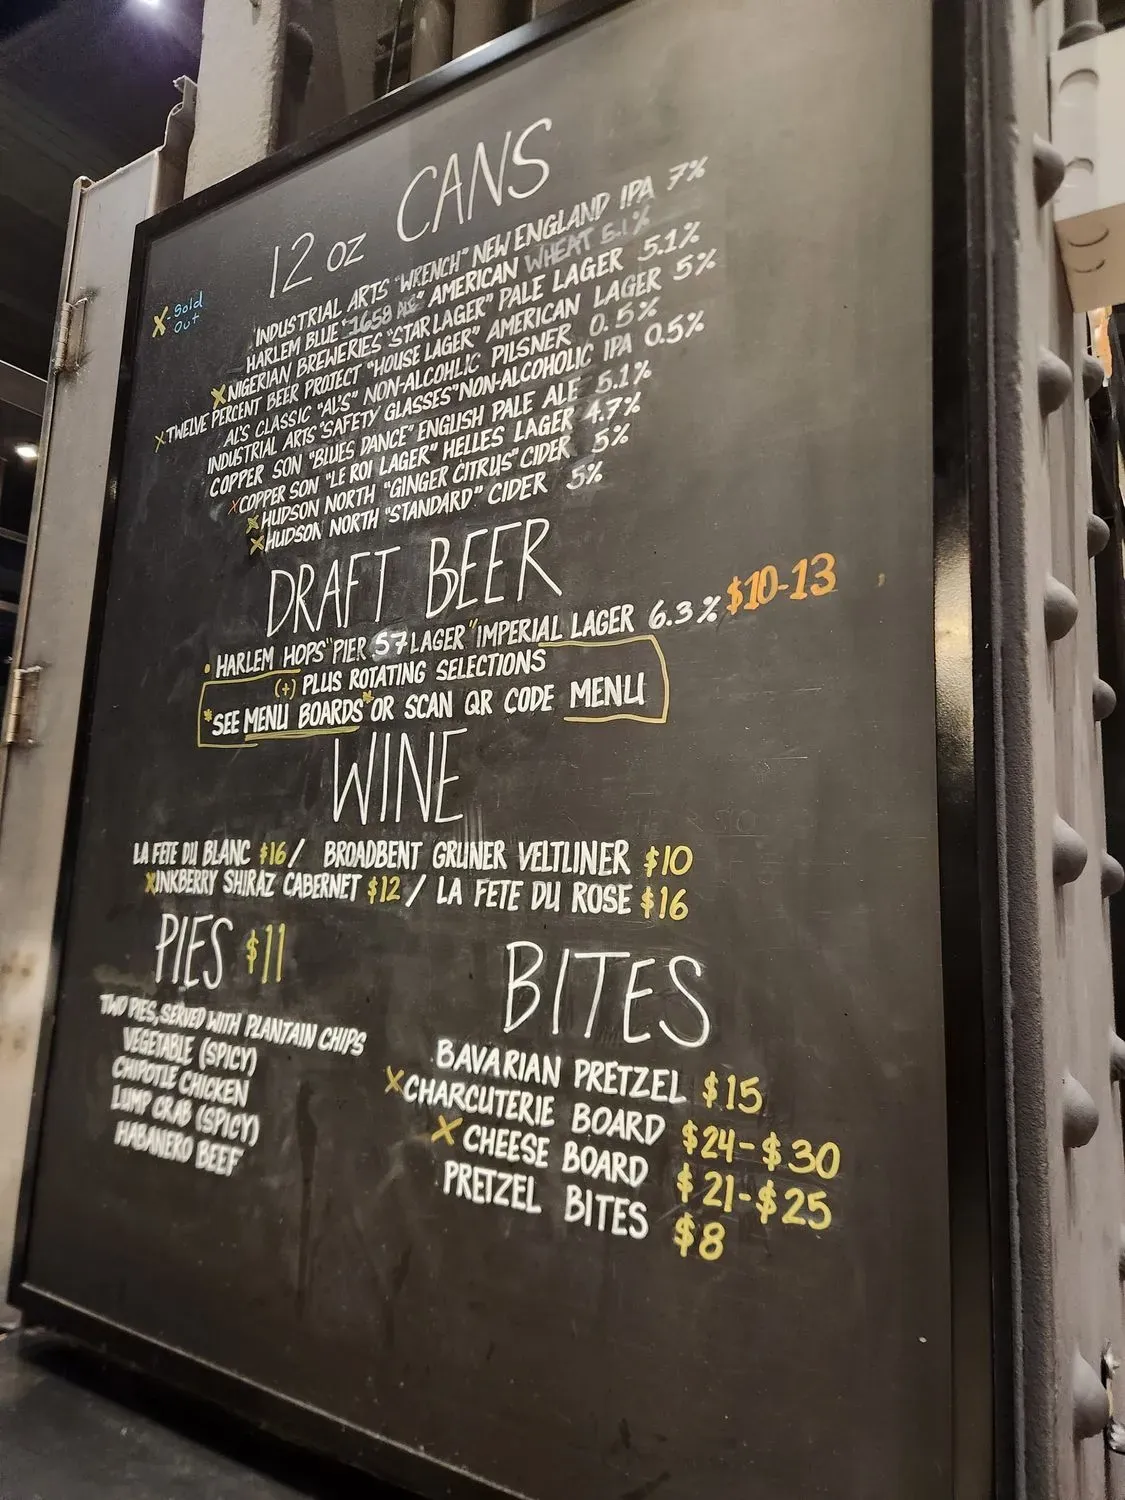 12 oz CANS
X - Sold Out
INDUSTRIAL ARTS "WRENCH" NEW ENGLAND IPA 7%
HARLEM BLUE "1658 ALE" AMERICAN WHEAT 5.1%
X NIGERIAN BREWERIES "STAR LAGER" PALE LAGER 5.1%
X TWELVE PERCENT BEER PROJECT "HOUSE LAGER" AMERICAN LAGER 5%
AL'S CLASSIC "AL'S" NON-ALCOHLIC PILSNER 0.5%
INDUSTRIAL ARTS "SAFETY GLASSES" NON-ALCOHOLIC IPA 0.5%
COPPER SON "BLUES DANCE" ENGLISH PALE ALE 5.1%
X COPPER SON "LE ROI LAGER" HELLES LAGER 4.7%
X HUDSON NORTH "GINGER CITRUS" CIDER 5%
X HUDSON NORTH "STANDARD" CIDER 5%
DRAFT BEER
• HARLEM HOPS "PIER 57 LAGER" IMPERIAL LAGER 6.3% $10-13
(+) PLUS ROTATING SELECTIONS
*SEE MENU BOARDS* OR SCAN QR CODE MENU
WINE
LA FETE DU BLANC $16 / BROADBENT GRUNER VELTLINER $10
X INKBERRY SHIRAZ CABERNET $12 / LA FETE DU ROSE $16
PIES $11
TWO PIES, SERVED WITH PLANTAIN CHIPS
VEGETABLE (SPICY)
CHIPOTLE CHICKEN
LUMP CRAB (SPICY)
HABANERO BEEF
BITES
BAVARIAN PRETZEL $15
X CHARCUTERIE BOARD $24-$30
X CHEESE BOARD $21-$25
PRETZEL BITES $8